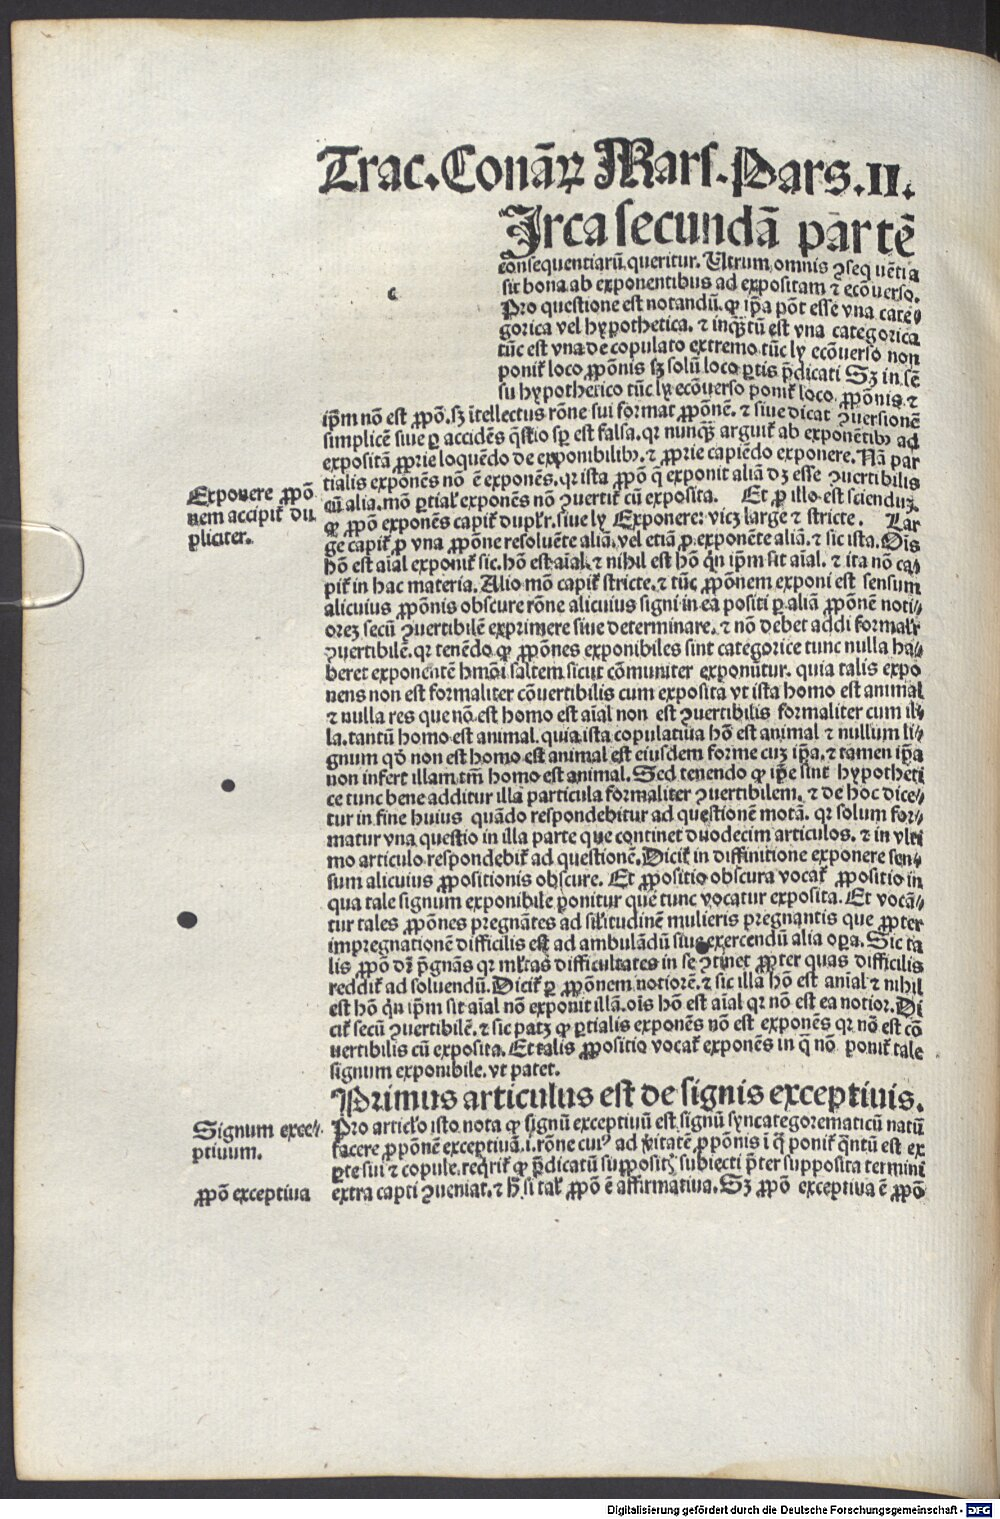 Trac. Conaꝝ Mars. Pars. II.
Irca secundā partē
consequentiarū queritur. Utrum omnis ꝯsequētia
sit bona ab exponentibus ad expositam ⁊ ecōuerso.
Pro questione est notandū. ꝙ ip̄a pōt esse vna cate⸗
gorica vel hypothetica. ⁊ inqꝫtū est vna categorica
tūc est vna de copulato extremo tūc ly ecōuerso non
poniť loco ꝓpōnis sꝫ solū loco ꝑtis p̄dicati Sꝫ in sē
su hypothetico tūc ly ecōuerso poniť loco ꝓpōnis ⁊
ip̄m nō est ꝓpō. sꝫ ītellectus rōne sui format ꝓpōnē. ⁊ siue dicat ꝯuersionē
simplicē siue ꝑ accidēs q̄stio sꝑ est falsa. qr nunqꝫ arguiť ab exponētibꝰ ad
expositā ꝓprie loquēdo de exponibilibꝰ. ⁊ ꝓprie capiēdo exponere. Nā par
tialis exponēs nō ē exponēs. qr ista ꝓpō q̄ exponit aliā dꝫ esse ꝯuertibilis
cū alia. mō ꝑtialꝭ exponēs nō ꝯuertiť cū exposita. Et ꝑ illo est sciendum
Exponere ꝓpō
nem accipiť du
pliciter.
ꝙ ꝓpō exponēs capiť duplꝛ. siue ly Exponere: vicꝫ large ⁊ stricte. Lar
ge capiť ꝑ vna ꝓpōne resoluēte aliā. vel etiā ꝑ exponēte aliā. ⁊ sic ista. Oīs
hō est aīal exponiť sic. hō est aīal. ⁊ nihil est hō qn̄ ip̄m sit aīal. ⁊ ita nō ca⸗
piť in hac materia. Alio mō capiť stricte. ⁊ tūc ꝓpōnem exponi est sensum
alicuius ꝓpōnis obscure rōne alicuius signi in ea positi ꝑ aliā ꝓpōnē noti⸗
orē secū ꝯuertibilē exprimere siue determinare. ⁊ nō debet addi formalꝛ
ꝯuertibilē. qr tenēdo ꝙ ꝓpōnes exponibiles sint categorice tunc nulla ha⸗
beret exponentē hmōi saltem sicut cōmuniter exponūtur. quia talis expo
nens non est formaliter cōuertibilis cum exposita vt ista homo est animal
⁊ nulla res que nō est homo est aīal non est ꝯuertibilis formaliter cum il⸗
la. tantū homo est animal. quia ista copulatiua hō est animal ⁊ nullum li⸗
gnum qd̄ non est homo est animal est eiusdem forme cuꝫ ip̄a. ⁊ tamen ip̄a
non infert illam tm̄ homo est animal. Sed tenendo ꝙ ip̄e sint hypotheti
ce tunc bene additur illa particula formaliter ꝯuertibilem. ⁊ de hoc dice⸗
tur in fine huius quādo respondebitur ad questionē motā. qr solum for⸗
matur vna questio in illa parte que continet duodecim articulos. ⁊ in vlti
mo articulo respondebiť ad questionē. Diciť in diffinitione exponere sen⸗
sum alicuius ꝓpositionis obscure. Et ꝓpositio obscura vocať ꝓpositio in
qua tale signum exponibile ponitur que tunc vocatur exposita. Et vocā⸗
tur tales ꝓpōnes pregnātes ad silꝭitudinē mulieris pregnantis que ꝓpter
impregnationē difficilis est ad ambulādū siue exercendū alia oꝑa. Sic ta
lis ꝓpō dr̄ p̄gnās qr mlꝭtas difficultates in se ꝯtinet ꝓpter quas difficilis
reddiť ad soluendū. Diciť ꝑ ꝓpōnem notiorē. ⁊ sic illa hō est aīal ⁊ nihil
est hō qn̄ ip̄m sit aīal nō exponit illā. oīs hō est aīal qr nō est ea notior. Di
ciť secū ꝯuertibilē. ⁊ sic patꝫ ꝙ ꝑtialis exponēs nō est exponēs qr nō est cō
uertibilis cū exposita. Et talis ꝓpositio vocať exponēs in q̄ nō poniť tale
signum exponibile. vt patet.
Primus articulus est de signis exceptiuis.
Signum exce⸗
ptiuum.
Pro articlꝭo isto nota ꝙ signū exceptiuū est signū syncategorematicū natū
facere ꝓpōnē exceptiuā. i. rōne cuiꝰ ad v̓itatē ꝓpōnis ī q̄ poniť q̄ntū est ex
ꝑte sui ⁊ copule. reqriť ꝙ p̄dicatū suppositꝭ subiecti p̄ter supposita termini
ꝓpō exceptiua
extra capti ꝯueniat. ⁊ h̄ si talꝭ ꝓpō ē affirmatiua. Sꝫ ꝓpō exceptiua ē ꝓpō
Digitalisierung gefördert durch die Deutsche Forschungsgemeinschaft - DFG